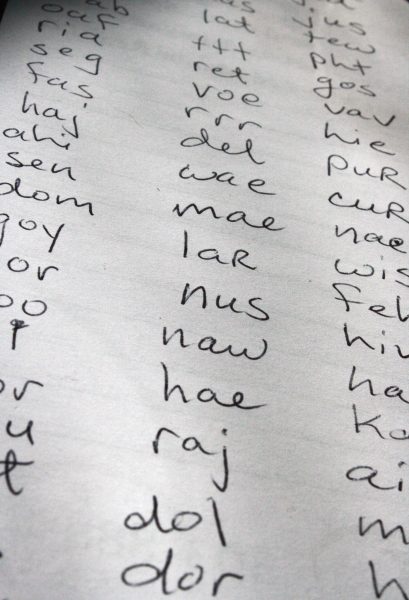 oaf
ria
seg
fas
haj
ahi
sen
dom
goy
or
oo
lat
ttt
ret
voe
rrr
del
wae
mae
laR
nus
naw
hae
raj
dol
dor
jus
tew
pht
gos
vav
hie
puR
cuR
nae
wis
ha
ai